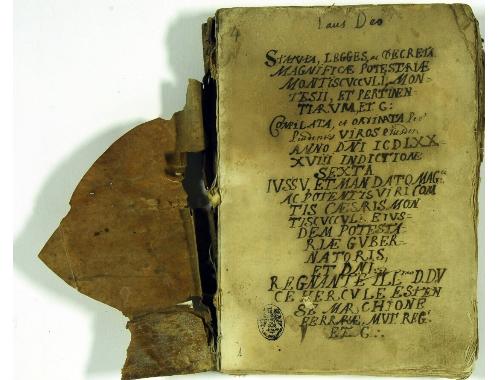 Laus Deo
STATUTA, LEGGES, ac DECRETA
MAGNIFICÆ POTESTARIÆ
MONTISCUCCULI, MON=
TESII, ET PERTINEN=
TIARUM, ET G:
COMPILATA, et ORDINATA Per
VIROS
ANNO DNI ICDLXX=
XVIII INDICTIONE
SEXTA
IUSSU, ET MANDATO MAG:
AC POTENTIS VIRI COM
TIS CÆSARIS MON
TISCUCCULI EIUS=
DEM POTESTA=
RIÆ GUBER=
NATORIS,
ET DNI
REGNANTE ILL D.DU
CE HERCULE ESTEN
SE MARCHIONE
FERRARÆ, MUT REG:
ET G:.
1